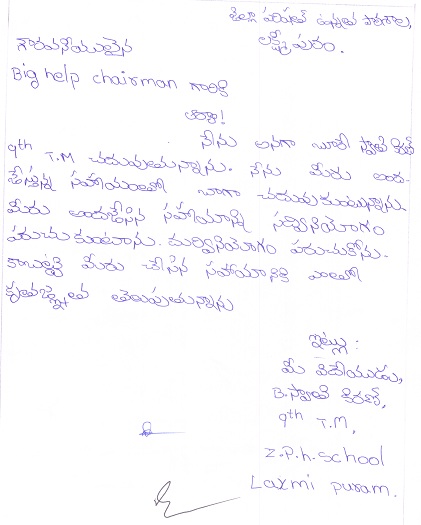 జిల్లా పరిషత్ ఉన్నత పాఠశాల,
లక్ష్మీపురం.
గౌరవనీయులైన
Big help chairman గారికి
సార్!
నేను అనగా బూరి స్వాతి కిరణ్
9th T.M చదువుతున్నాను. నేను మీరు అంద-
జేస్తున్న సహాయంతో బాగా చదువుకుంటున్నాను.
మీరు అందజేసిన సహాయాన్ని సద్వినియోగం
పరుచుకుంటాను. దుర్వినియోగం పరుచుకోను.
కాబట్టి మీరు చేసిన సహాయానికి ఎంతో
కృతజ్ఞత తెలుపుతున్నాను
ఇట్లు :
మీ విధేయుడు,
B.స్వాతి కిరణ్,
9th T.M,
Z.P.h.School
Laxmi puram.